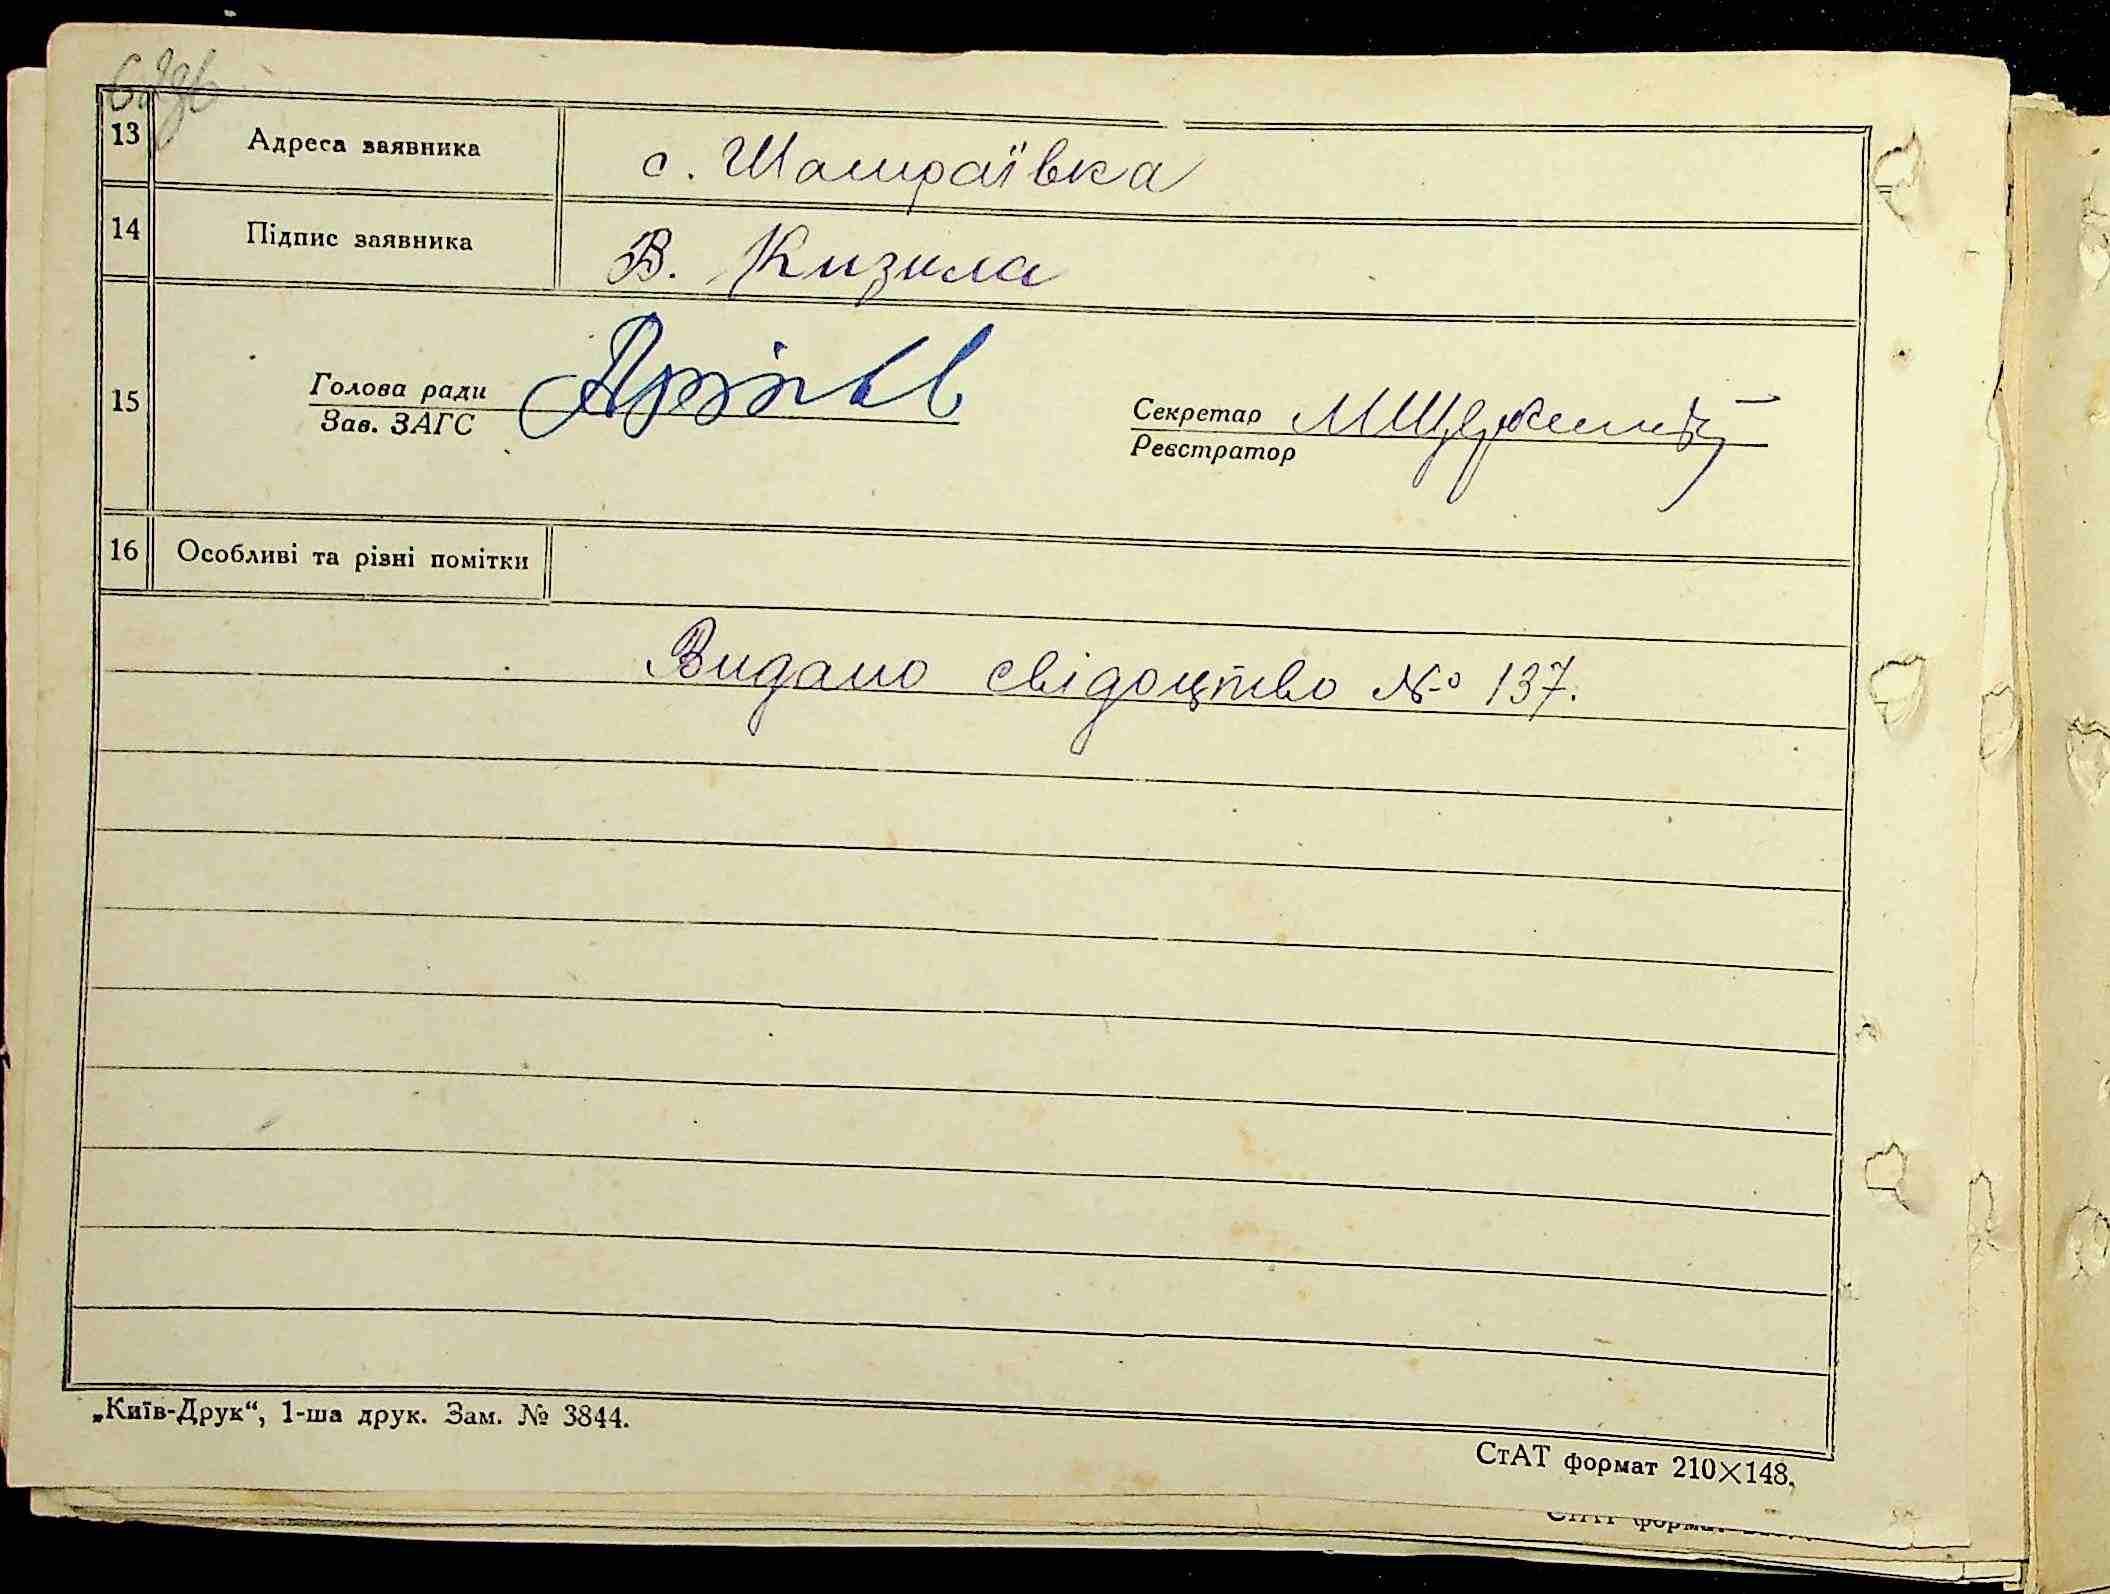 13 Адреса заявника с. Шамраївка
14 Підпис заявника В. Кизила
15 Голова ради
Зав. ЗАГС
Секретар
Реєстратор
16 Особливі та різні помітки
Видано свідоцтво № 137.
„Київ-Друк“, 1-ша друк. Зам. № 3844.
СтАТ формат 210×148.